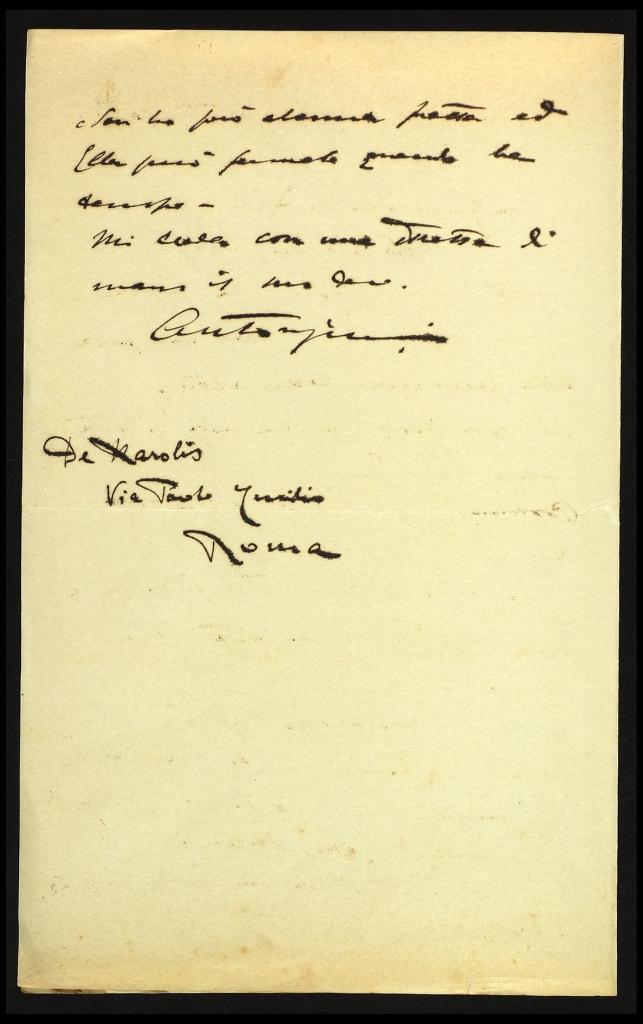 Non ho però alcuna fretta ed
Ella può farmelo quando ha
tempo –
Mi creda con una stretta di
mano il suo dev.
Antongini
De Karolis
Via Paolo Emilio
Roma